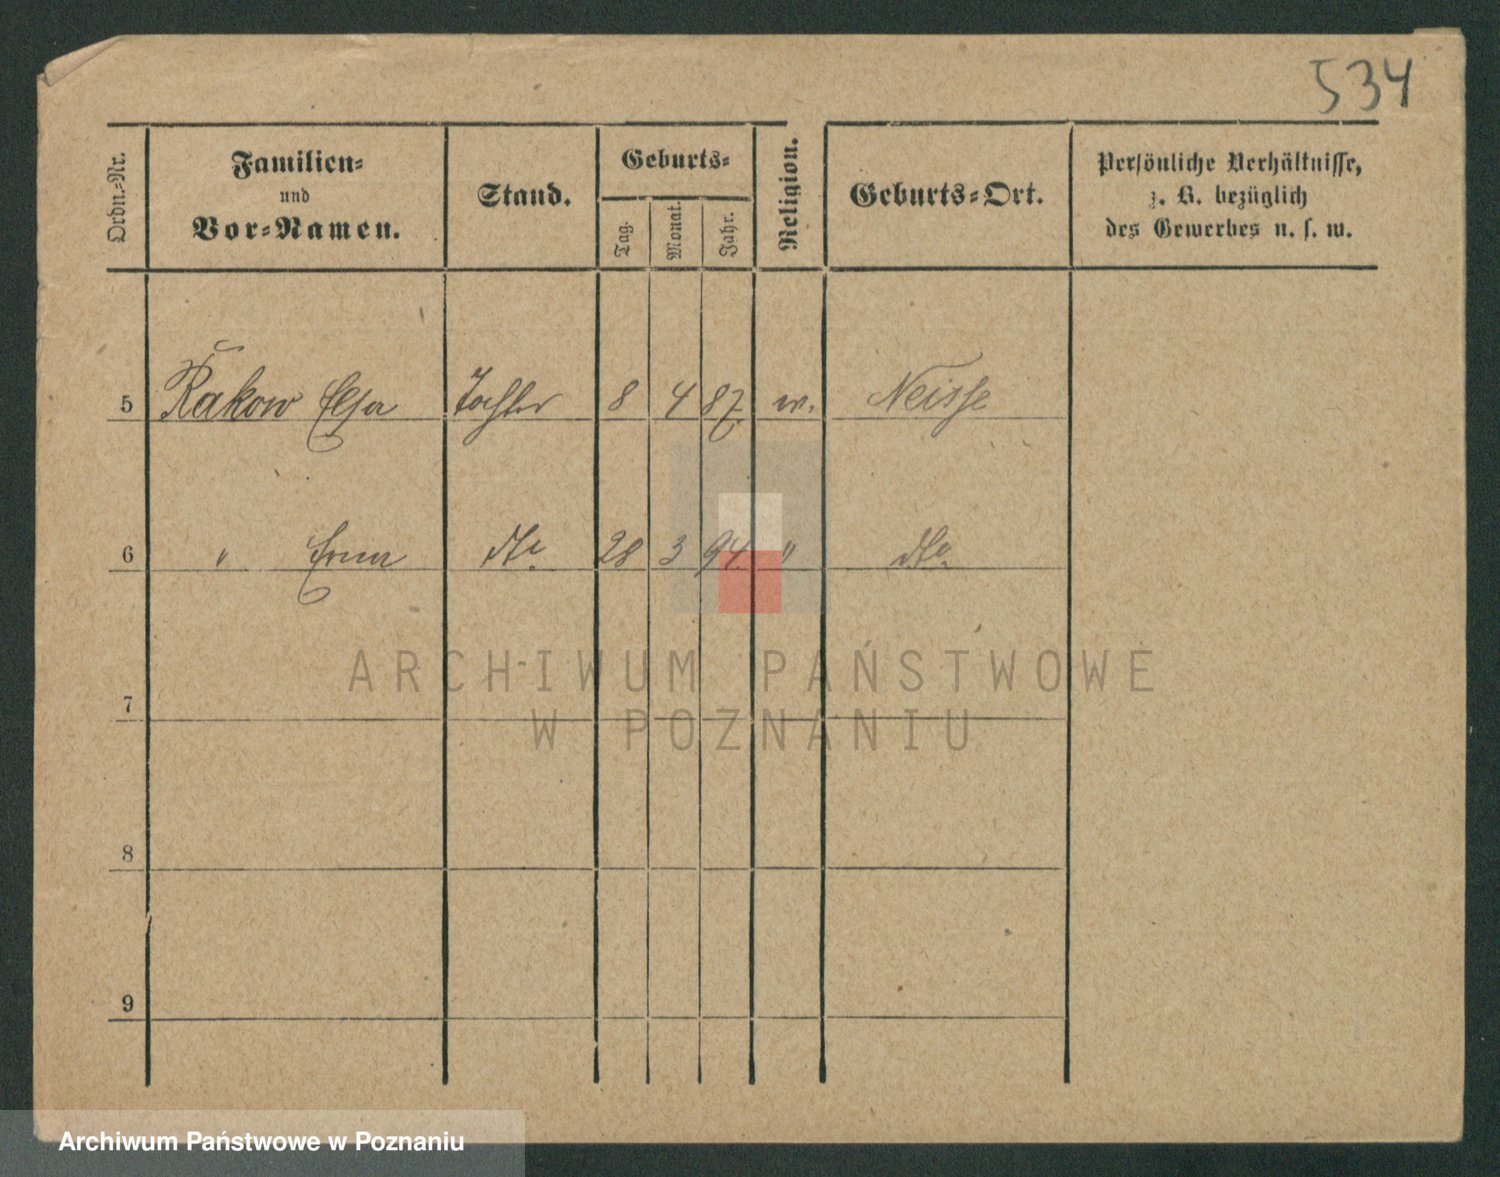 534
Ordn.-Nr.
Familien-
und
Vor-Namen.
Stand.
Geburts-
Tag.
Monat.
Jahr.
Religion.
Geburts-Ort.
Persönliche Verhältnisse,
z. B. bezüglich
des Gewerbes u. s. w.
5 Rakow Elsa Tochter 8 4 87. Neisse
6 " Erna dto. 28 3 94. " dto.
7
8
9
ARCHIWUM PAŃSTWOWE
W POZNANIU
Archiwum Państwowe w Poznaniu